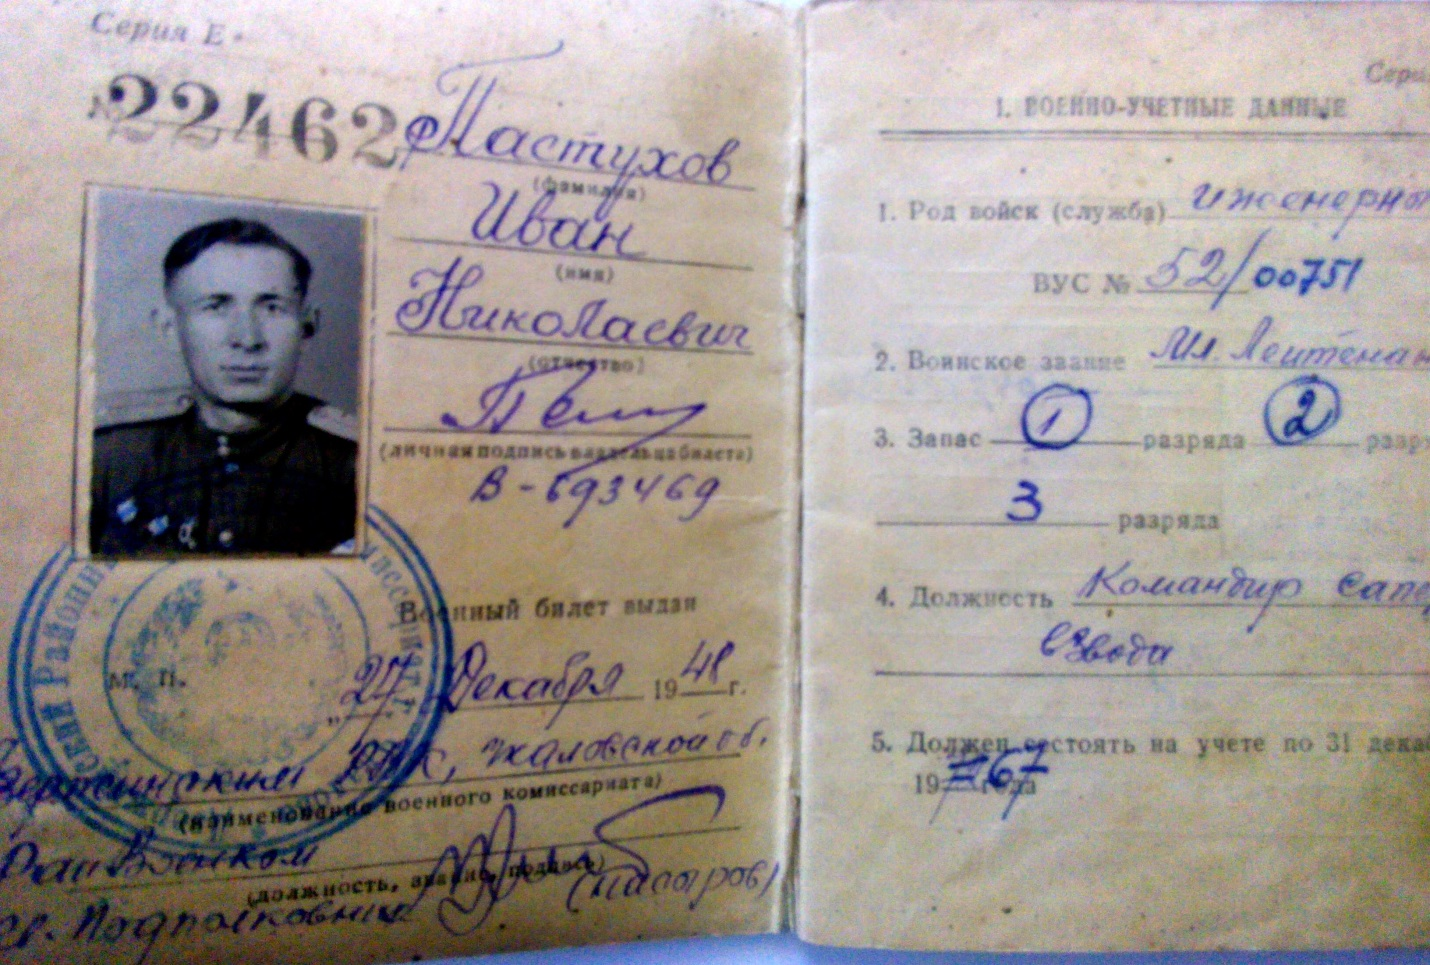 Серия Е
№ 22462
Пастухов
(фамилия)
Иван
(имя)
Николаевич
(отчество)
(личная подпись владельца билета)
В-693469
Военный билет выдан
М. П.
„27" Декабря 1948 г.
РВК, Чкаловской об.
(наименование военного комиссариата)
РайВоенком
(должность, звание, подпись)
Подполковник
Районный
Сери
I. ВОЕННО-УЧЕТНЫЕ ДАННЫЕ
1. Род войск (служба) инженерны
ВУС № 52/00751
2. Воинское звание Мл. Лейтенан
3. Запас 1 разряда 2 разр
3 разряда
4. Должность Командир сапер
взвода
5. Должен состоять на учете по 31 декаб
19 67 года